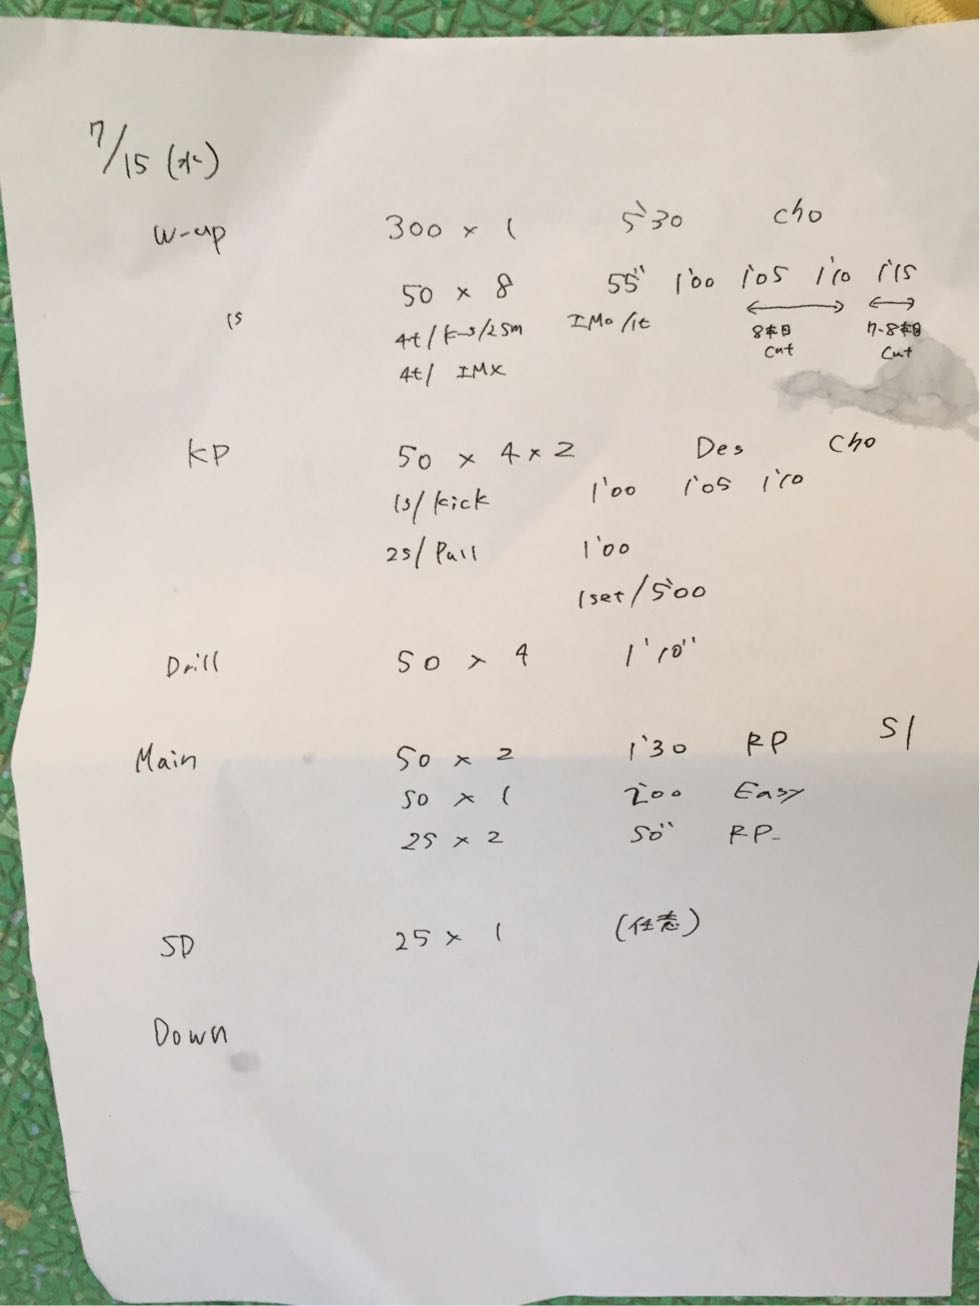 7/15 (水)
W-up 300 × 1 5'30 Cho
50 × 8 55" 1'00 1'05 1'10 1'15
1s 4t/K-S/25m IMO/1t 8本目 Cut 7-8本目 Cut
4t/ IMX
KP 50 × 4 × 2 Des Cho
1s/ Kick 1'00 1'05 1'10
2s/ Pull 1'00
1set/5'00
Drill 50 × 4 1'10"
Main 50 × 2 1'30 RP S1
50 × 1 2'00 Easy
25 × 2 50" RP
SD 25 × 1 (任意)
Down